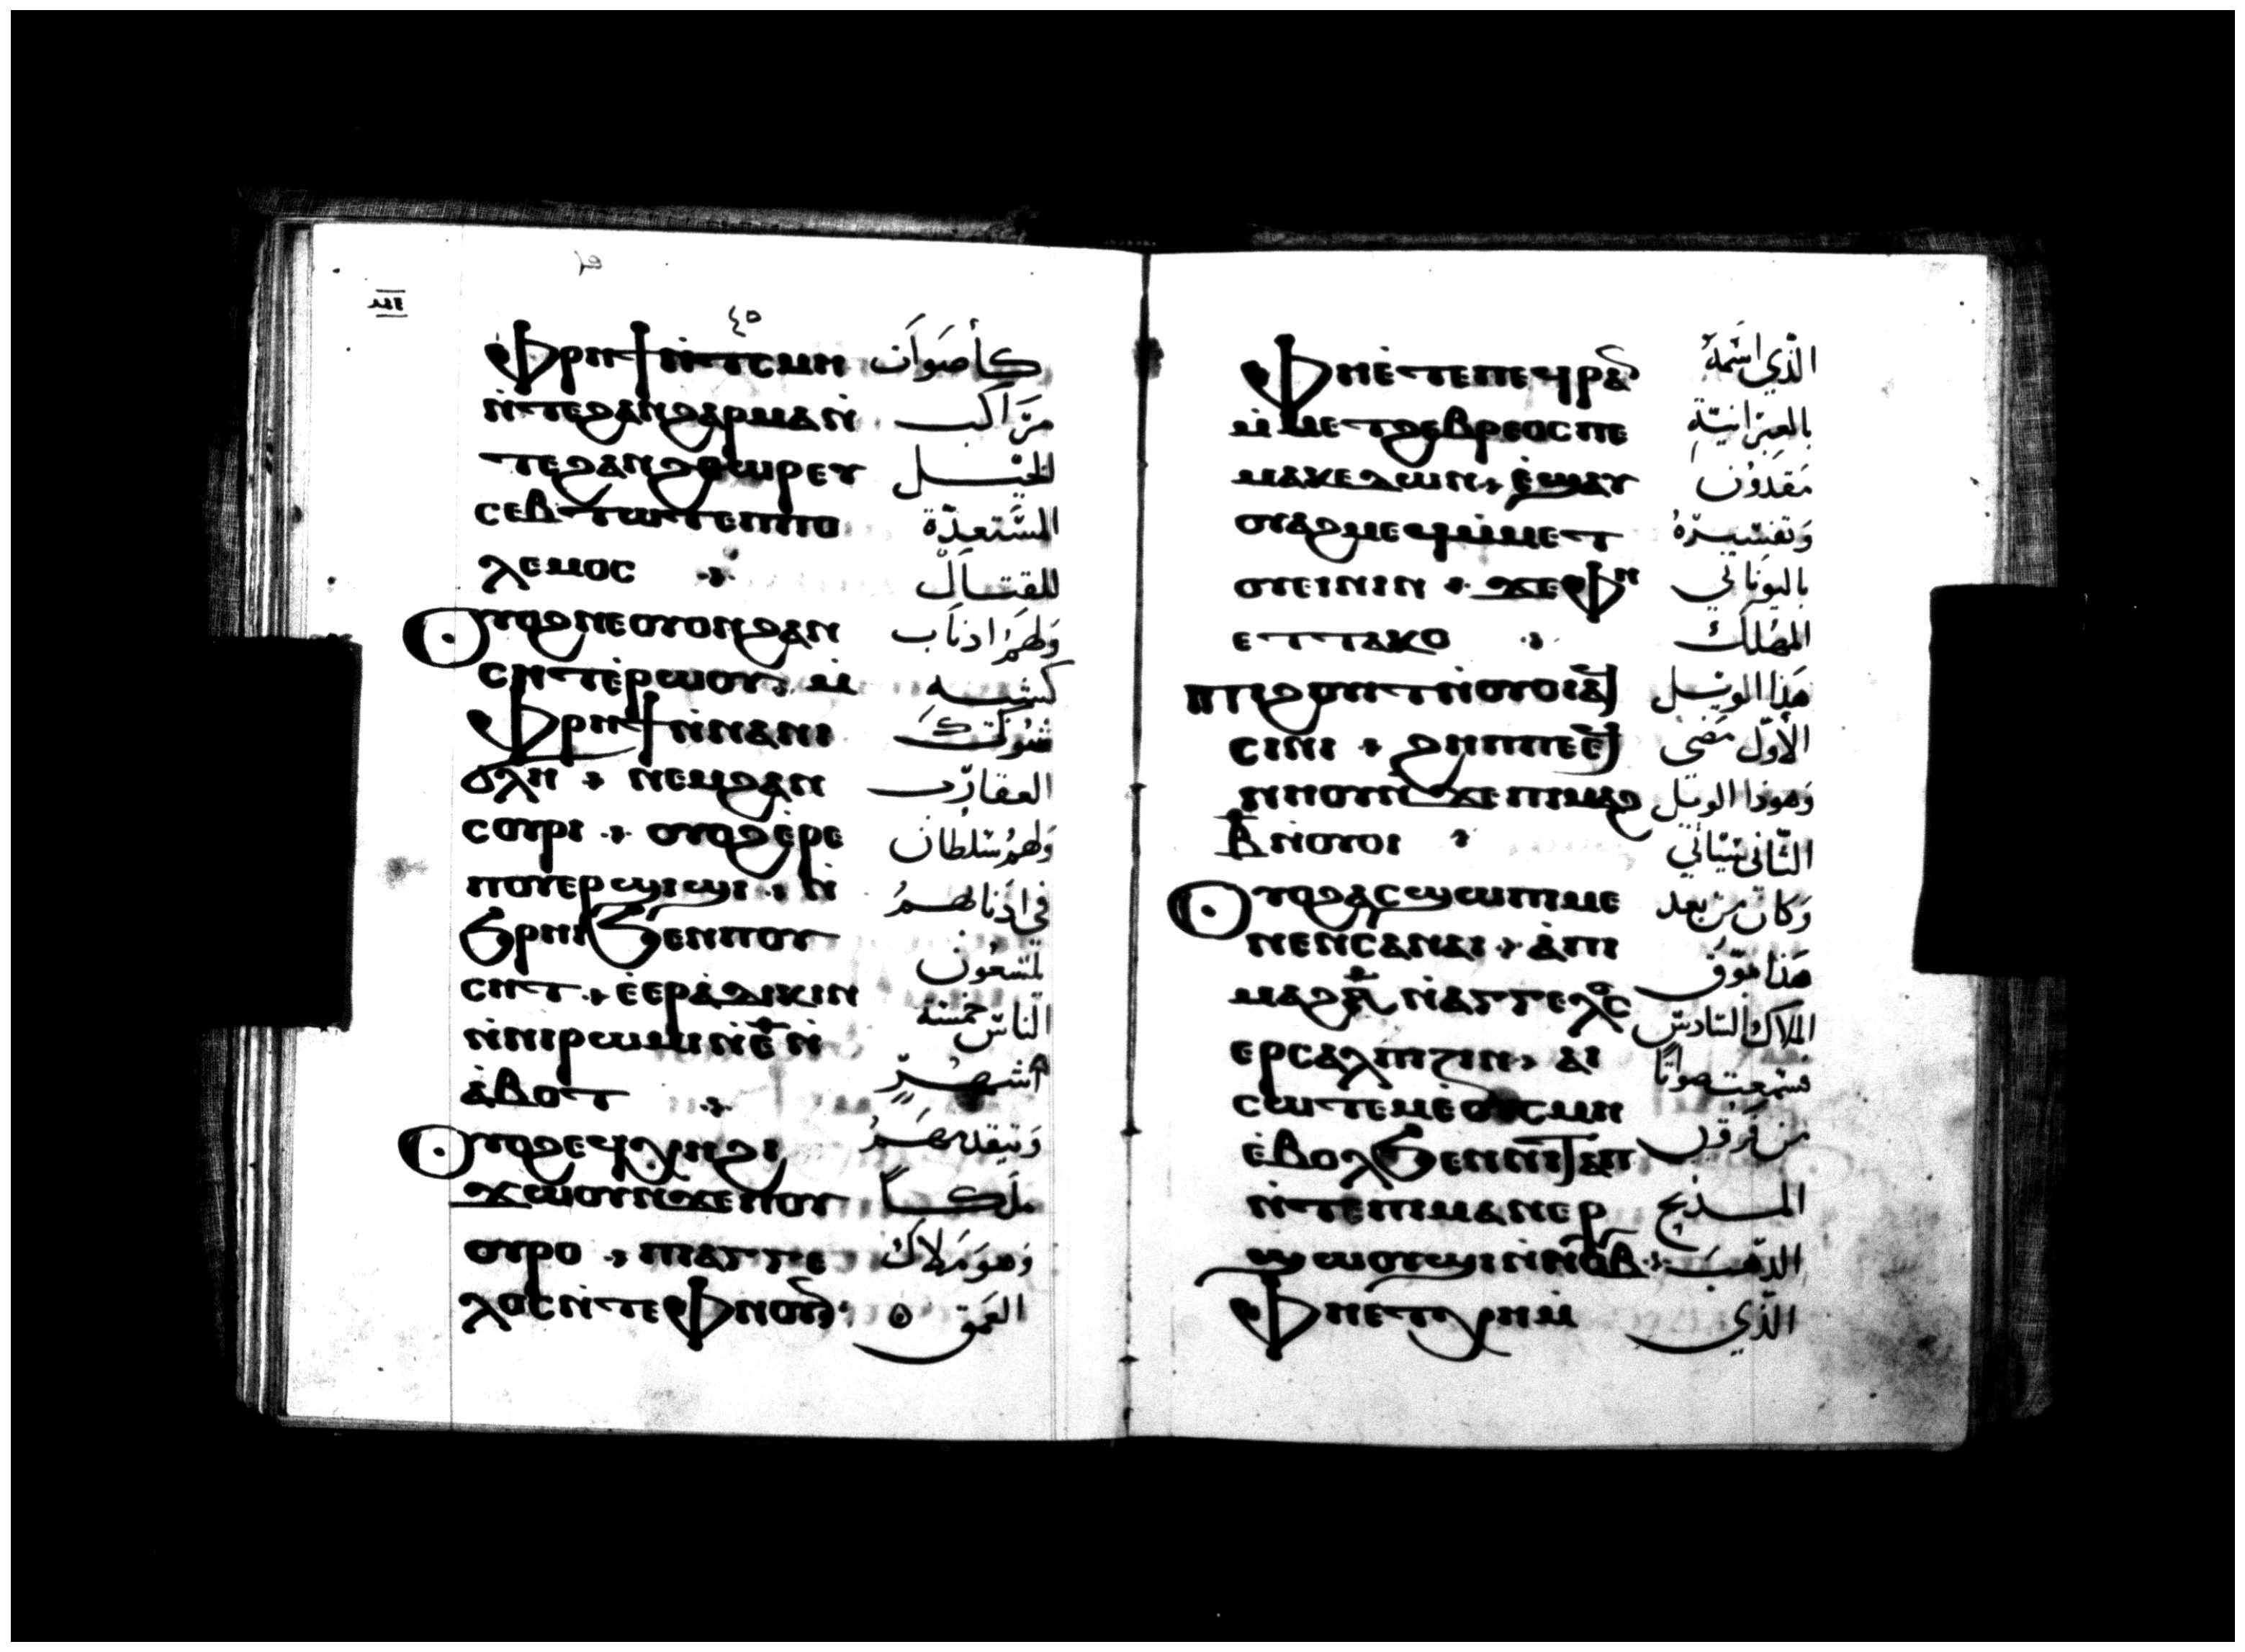 ⲙⲉ
٤٥
ⲫⲣⲏϯ ⲛ̇ⲧⲥⲙⲏ كأصوات
ⲛ̇ⲧⲉϩⲁⲛϩⲁⲣⲙⲁ ⲛ̇ مراكب
ⲧⲉϩⲁⲛϩⲑⲱⲣ ⲉⲩ الخيل
ⲥⲉⲃⲧⲱⲧ ⲉⲡⲡⲟ المستعدّة
ⲗⲉⲙⲟⲥ للقتال
ⲟⲩⲟϩ ⲛⲉⲟⲩⲟⲛϩⲁⲛ ولهم اذناب
ⲥⲏⲧ ⲉ̇ⲣⲱⲟⲩ ⲙ̇ كشبه
ⲫⲣⲏϯ ⲛ̇ⲛⲁⲛⲓ شوكة
ϭⲗⲏ ⲛⲉⲙϩⲁⲛ العقارب
ⲥⲟⲩⲣⲓ ⲟⲩⲟϩ ⲉ̇ⲣⲉ ولهم سلطان
ⲡⲟⲩⲉⲣϣⲓϣⲓ ⲛ̇ في اذنابهم
ϧⲣⲏⲓ ϧⲉⲛⲡⲟⲩ يلسعون
ⲥⲏⲧ ⲉ̇ⲉⲣⲁ̇ⲇⲓⲕⲓⲛ الناس خمسة
ⲛ̇ⲛⲓⲣⲱⲙⲓ ⲛ̇ⲉ̅ ⲛ̇ اشهر
ⲁ̇ⲃⲟⲧ
ⲟⲩⲟϩ ⲉϥⲭⲏ ϩⲓ ويتقدمهم
ϫⲱⲟⲩ ⲛ̇ϫⲉⲡⲟⲩ ملكاً
ⲟⲩⲣⲟ ⲡⲓⲁⲅⲅⲉ وهو ملاك
ⲗⲟⲥ ⲛ̇ⲧⲉ ⲫⲛⲟⲩⲛ العمق
ⲫⲏⲉ̇ⲧⲉⲡⲉϥⲣⲁⲛ الّذي اسمه
ⲙ̇ⲙⲉⲧϩⲉⲃⲣⲉⲟⲥ ⲡⲉ بالعبرانية
ⲙⲁⲕⲉⲇⲱⲛ ⲉ̇ϣⲁⲩ مقدون
ⲟⲩⲁϩⲙⲉϥ ⲙ̇ⲙⲉⲧ وتفسيره
ⲟⲩⲉⲓⲛⲓⲛ ϫⲉⲫⲏ باليوناني
ⲉⲧⲧⲁⲕⲟ المهلك
ⲡⲓϩⲟⲩⲓⲧ ⲛ̇ⲟⲩⲟⲓ ⲁϥ هذا الويل
ⲥⲓⲛⲓ ϩⲏⲡⲡⲉ ⲉϥ الأوّل مضى
ⲛⲏⲟⲩ ⲛ̇ϫⲉⲡⲓⲙⲁϩ وهوذا الويل
ⲃ̅ ⲛ̇ⲟⲩⲟⲓ الثاني سيأتي
ⲟⲩⲟϩ ⲁⲥϣⲱⲡⲓ ⲙⲉ وكان من بعد
ⲛⲉⲛⲥⲁⲛⲁⲓ ⲁ̇ⲡⲓ هذا بوّق
ⲙⲁϩⲋ̅ ⲛ̇ⲁⲅⲅⲉⲗⲟⲥ الملاك السادس
ⲉⲣⲥⲁⲗⲡⲓⲍⲓⲛ ⲁⲓ فسمعت صوتاً
ⲥⲱⲧⲉⲙ ⲉ̇ⲟⲩⲥⲙⲏ من قرون
ⲉ̇ⲃⲟⲗ ϧⲉⲛⲛⲓⲧⲁⲡ المذبح
ⲛ̇ⲧⲉⲡⲓⲙⲁⲛⲉⲣ الذهب
ϣⲱⲟⲩϣⲓ ⲛ̇ⲛⲟⲩⲃ
ⲫⲏⲉⲧⲭⲏ ⲙ̇ الّذي